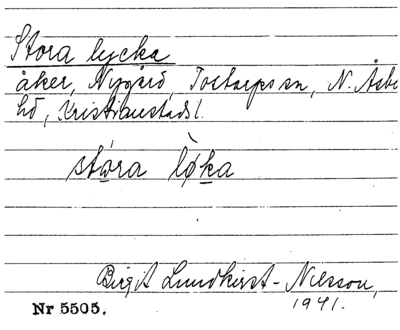 Stora lycka
åker, Nygård, Tostarps sn, N. Åsbo
hd, Kristianstads l.
stóra lø̀ka
Birgit Lundkvist-Nilsson,
1941.
Nr 5505.